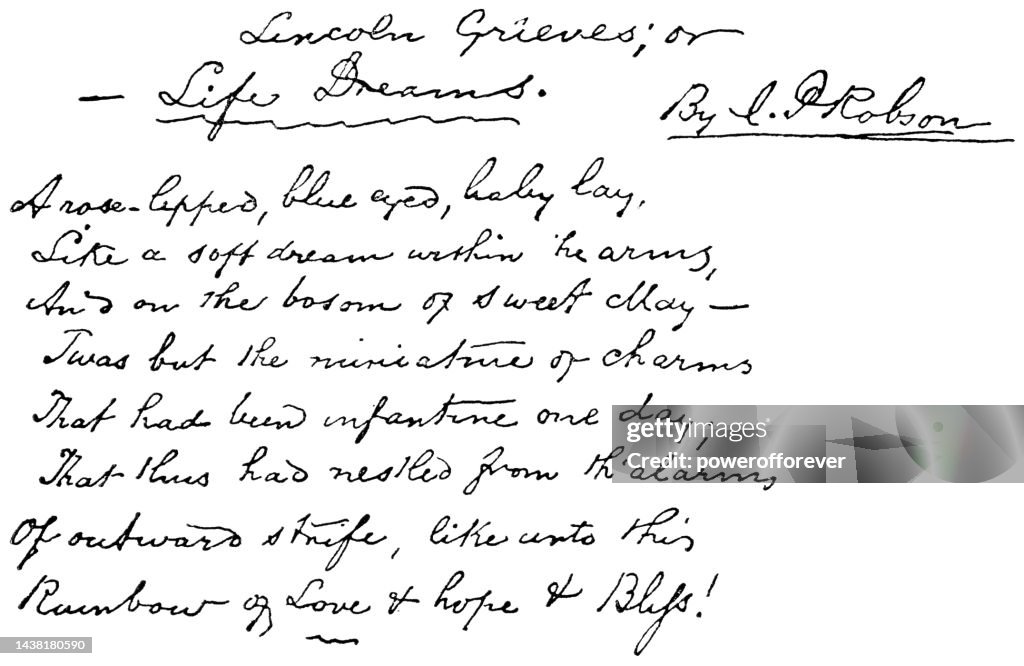 Lincoln Grieves; or
— Life Dreams.
By I. P Robson
A rose-lipped, blue eyed, baby lay,
Like a soft dream within he arms,
And on the bosom of sweet May —
Twas but the miniature of charms
That had been infantine one day,
That thus had nestled from th' alarms
Of outward strife, like unto this
Rainbow of Love & hope & Bliss!
gettyimages®
Credit: powerofforever
1438180590